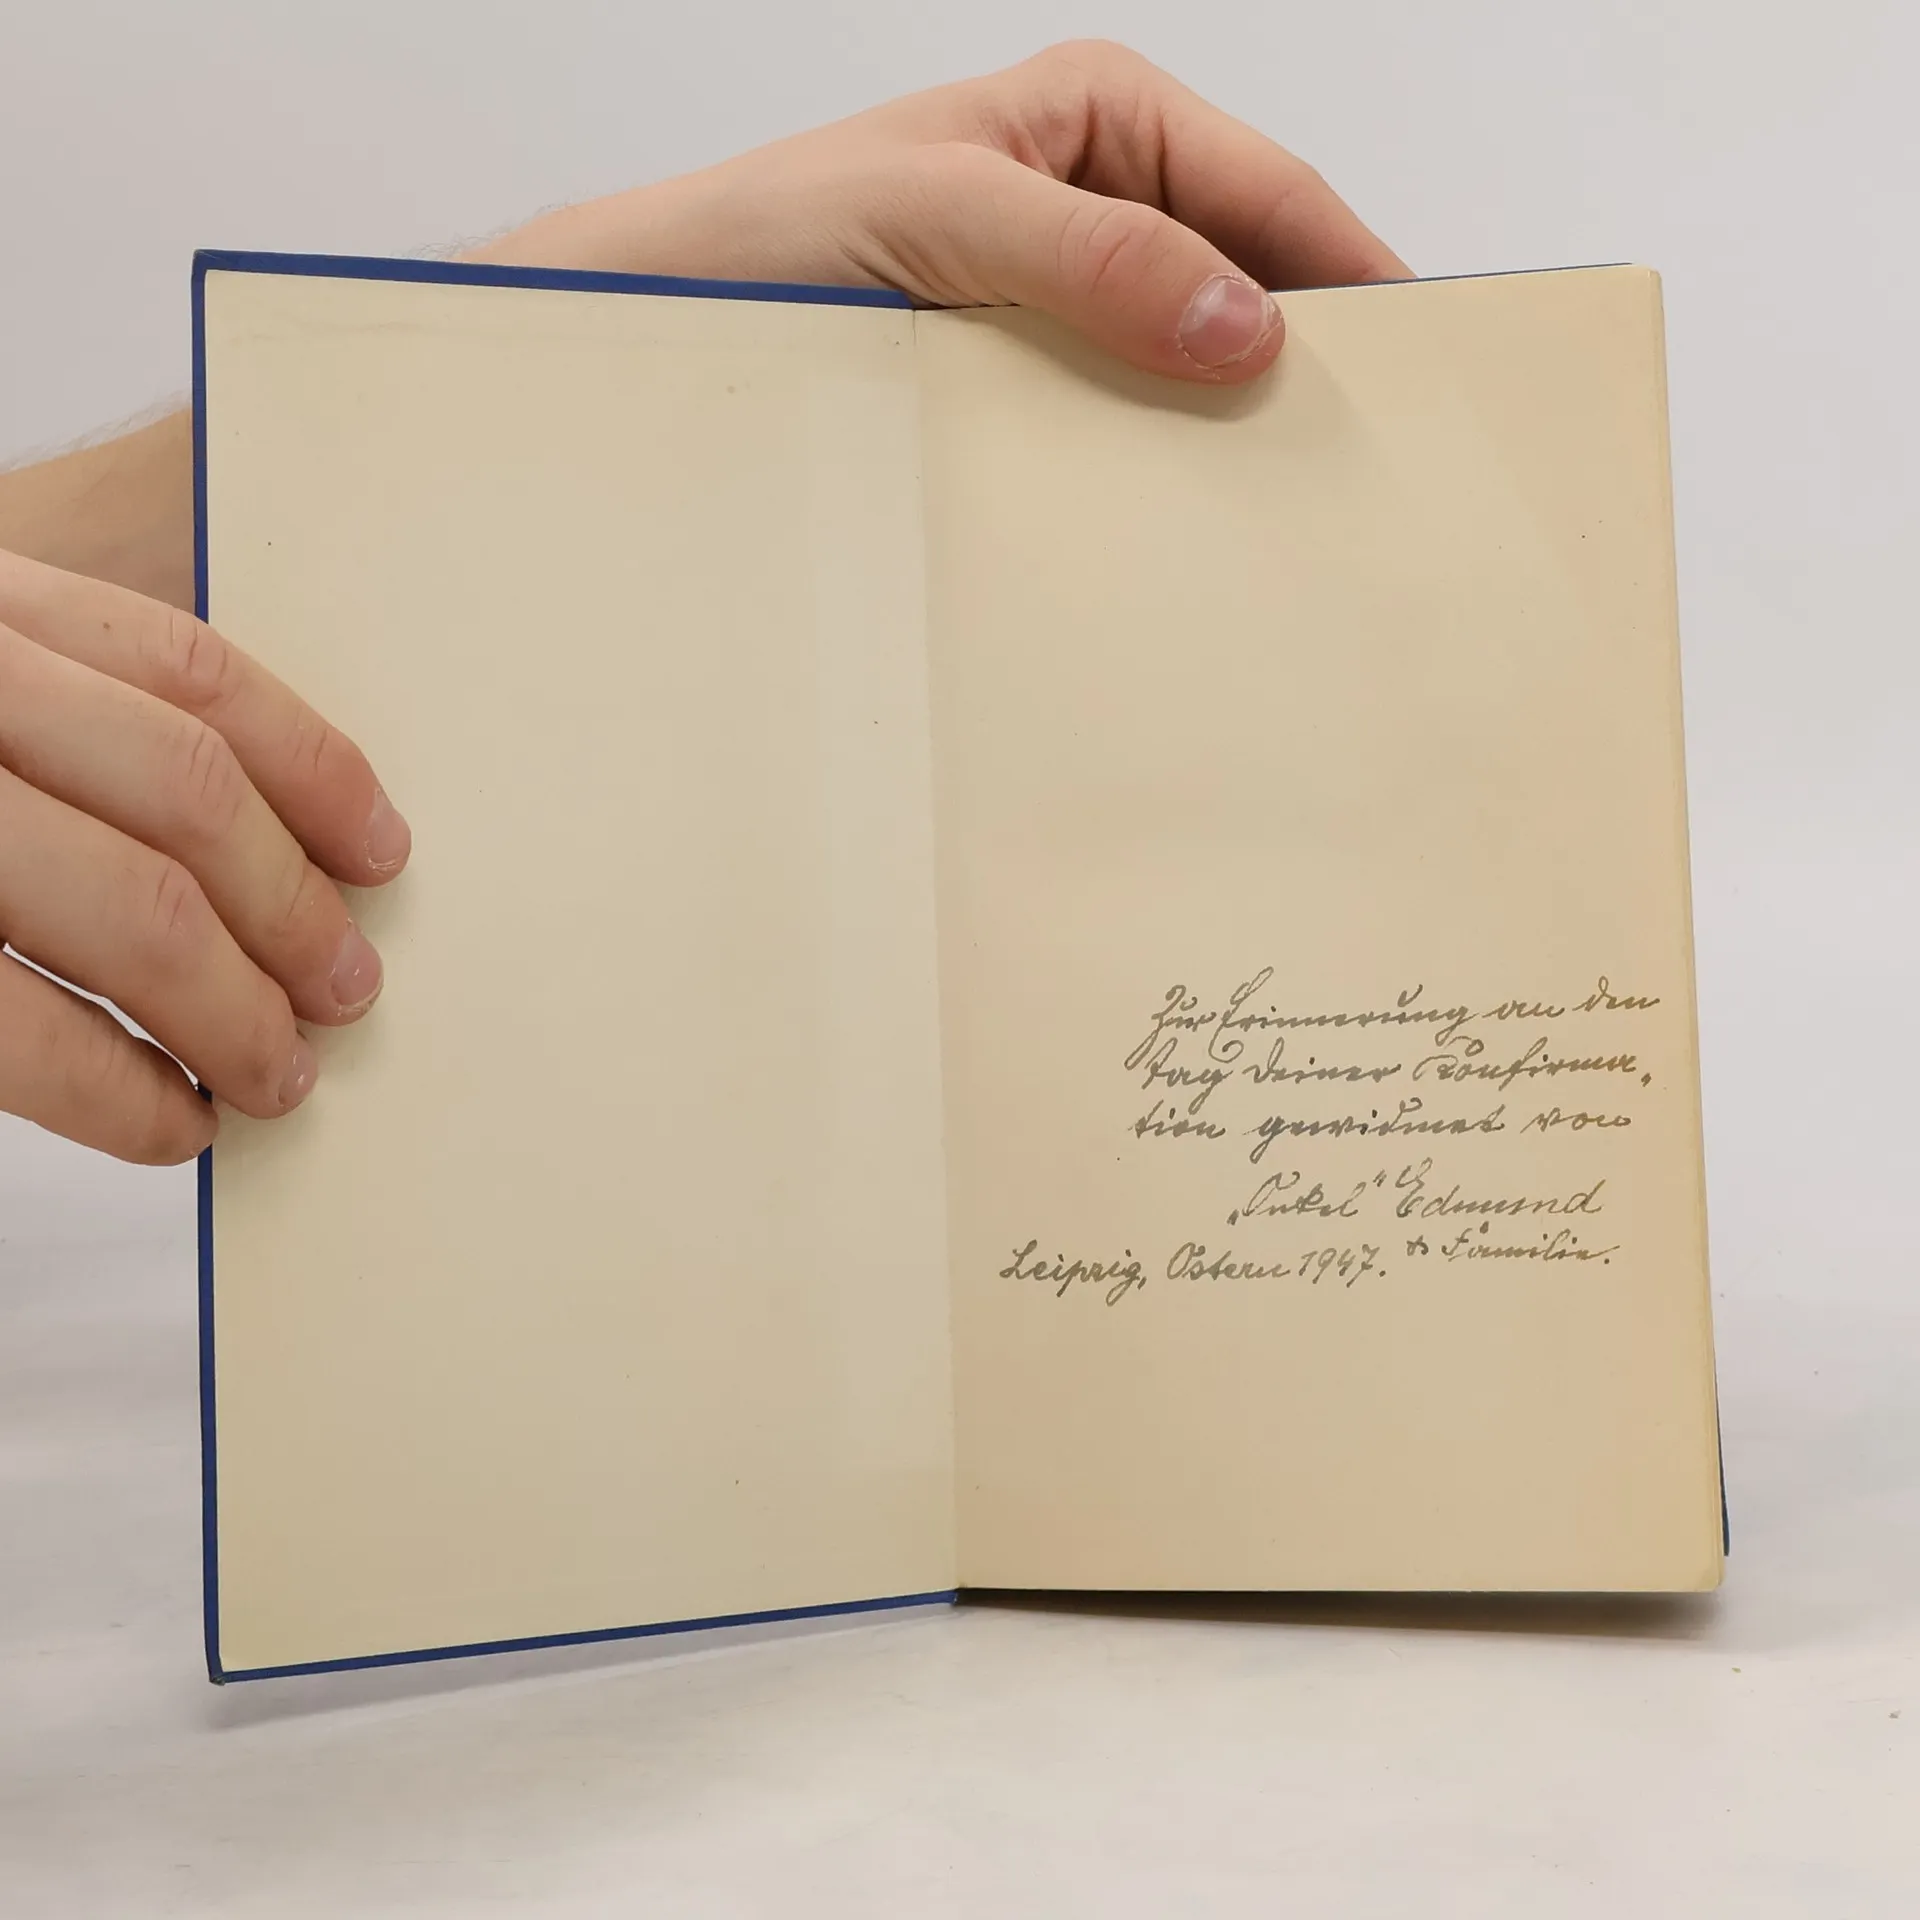 Zur Erinnerung an den
Tag Deiner Konfirma„
tion gewidmet von
„Onkel" Edmund
& Familie.
Leipzig, Ostern 1947.